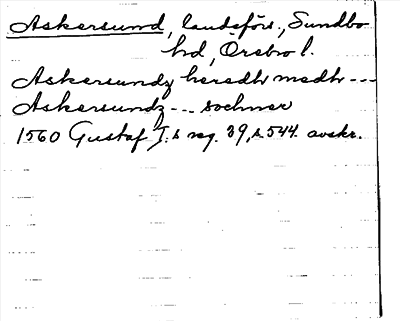 Askersund, landsförs., Sundbo
hd, Örebro l.
Askersundz heredt medt ---
Askersundz --- sochner
1560 Gustaf I:s reg. 29, s 544. avskr.